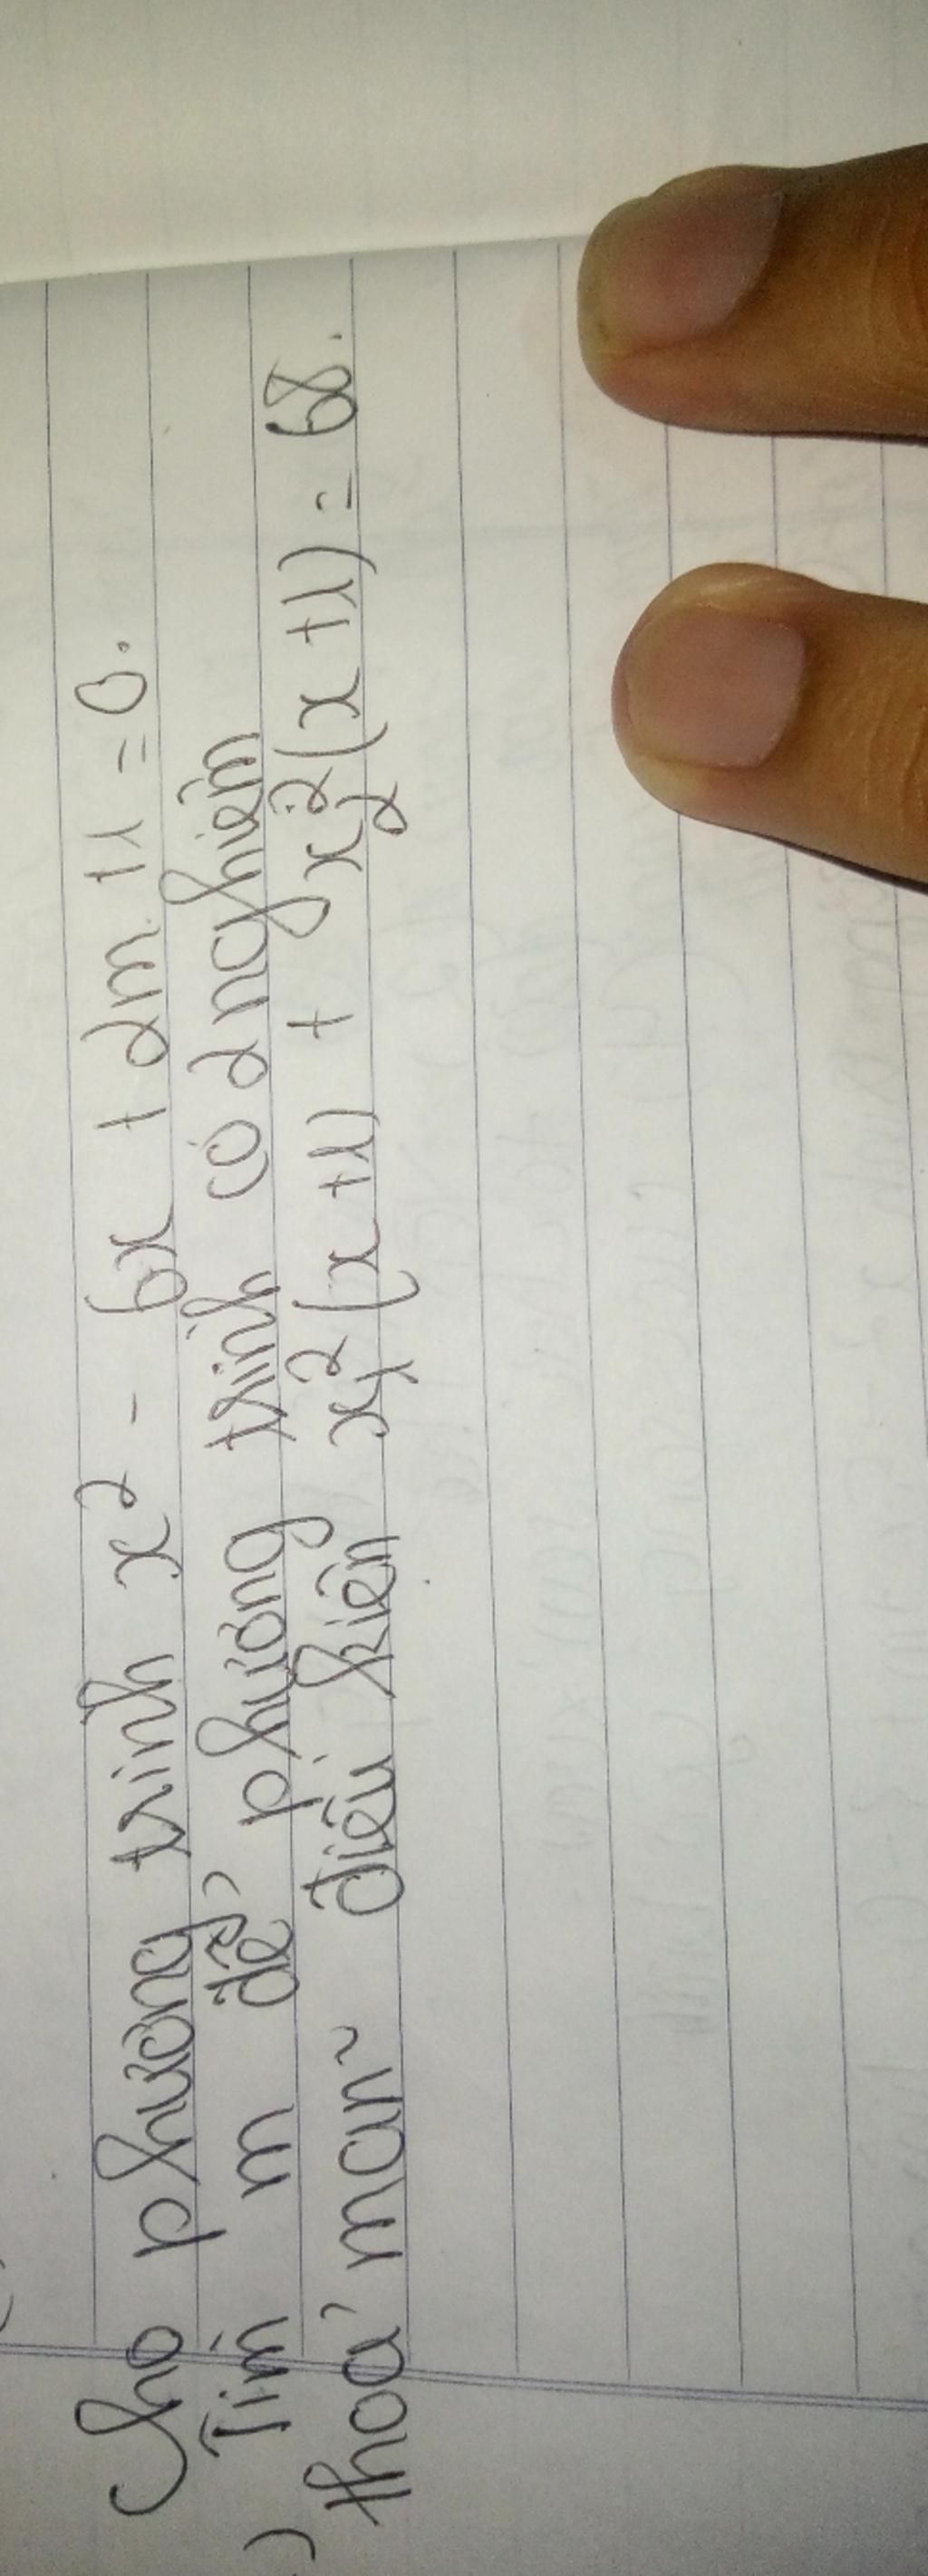 Cho phương trình x² - 6x + 2m + 1 = 0.
) Tìm m để phương trình có 2 nghiệm
thoả mãn điều kiện x₁²(x+1) + x₂²(x+1) = 68.